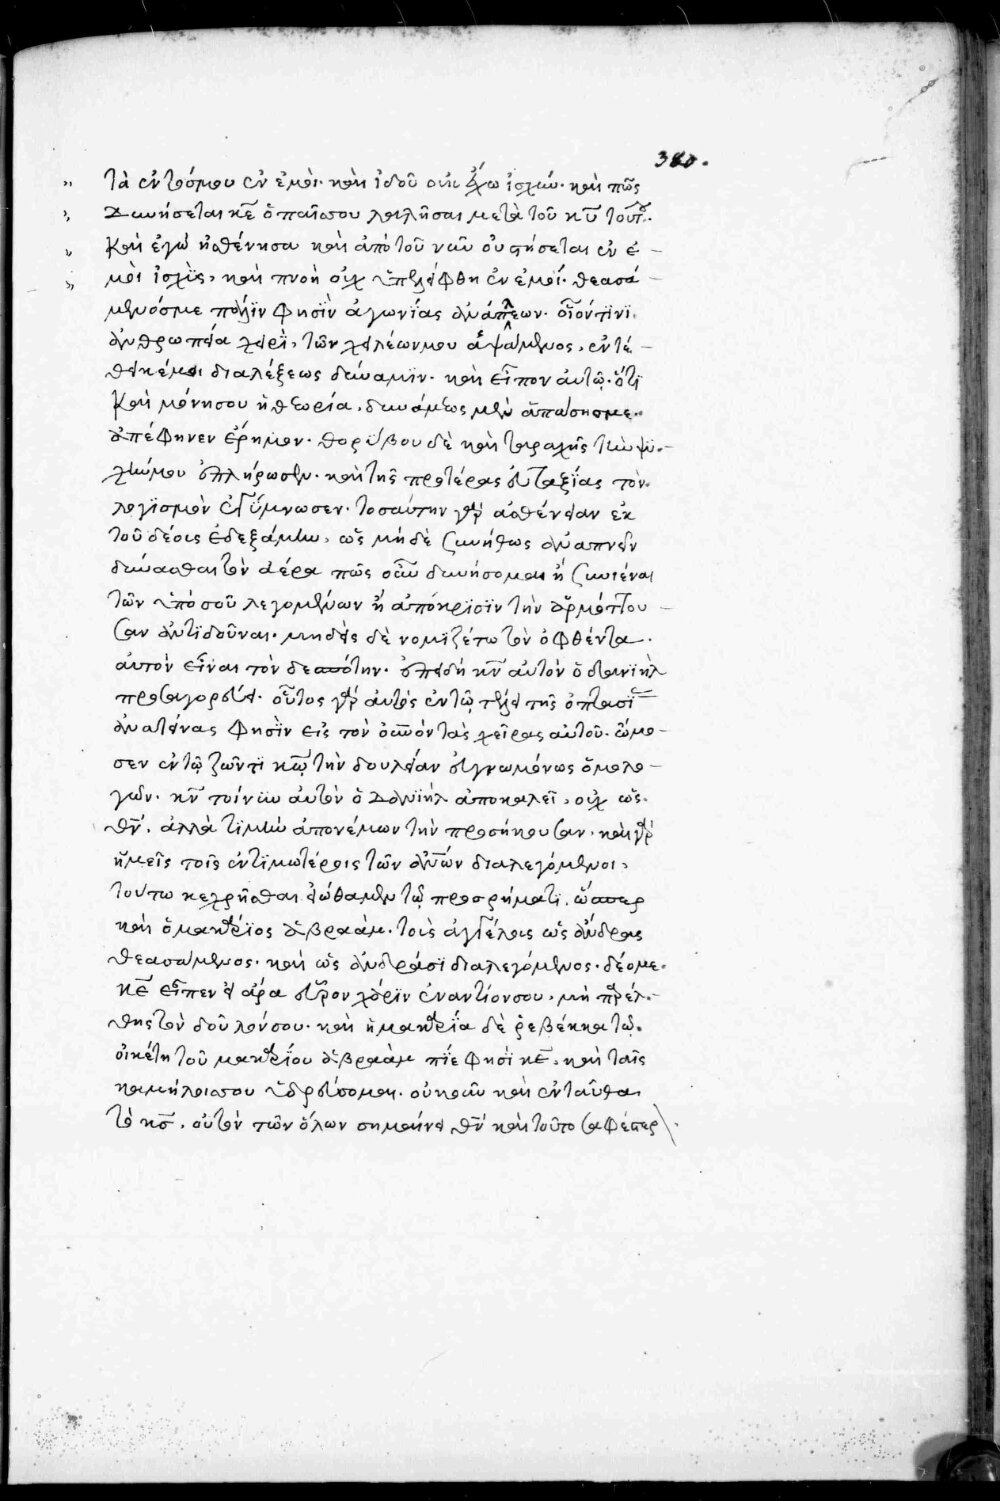 380.
τὰ ἐντόσμου ἐν ἐμοὶ· καὶ ἰδοῦ οὐκ ἔχω ἰσχύν· καὶ πῶς
Δυνήσεται κε̅ ὁ παῖς σου λαλῆσαι μετὰ τοῦ κυ̅ τούτου·
Καὶ ἐγὼ ἠσθένησα καὶ ἀπὸ τοῦ νῦν οὐ στήσεται ἐν ἐ-
μοὶ ἰσχὺς, καὶ πνοὴ οὐχ ὑπελείφθη ἐν ἐμοί· θεασά-
μενός με πάλϊν φησϊν ἀγωνίας ἀνάπλεων· οἷόν τϊνϊ
ἀνθρωπεία χειρὶ, τῶν χειλέων μου ἁψάμενος, ἐντέ-
θεικέ μοι διαλέξεως δύναμϊν· καὶ εἶπον αὐτῷ· ὅτϊ
Καὶ μόνη σου ἡ θεωρία, δυνάμεως μὲν ἁπάσης με
ἀπέφηνεν ἔρημον· θορύβου δὲ καὶ ταραχῆς τὴν ψυ-
χήν μου ἐπλήρωσεν· καὶ τῆς προτέρας εὐταξΐας τὸν
λογϊσμὸν ἐγύμνωσεν· τοσαύτην γὰρ ἀσθένειαν ἐκ
τοῦ δέους ἐδεξάμην, ὡς μὴ δὲ συνήθως ἀναπνεῖν
δύνασθαι τὸν ἀέρα πῶς οὖν δυνήσομαι ἢ συνιέναι
τῶν ὑπὸ σοῦ λεγομένων ἢ ἀπόκρϊσϊν τὴν ἁρμόττου-
σαν ἀντϊδοῦναι· μηδεὶς δὲ νομϊζέτω τὸν ὀφθέντα
αὐτὸν εἶναι τὸν δεσπότην· ἐπειδὴ κν̅ αὐτὸν ὁ δανϊὴλ
προσαγορεύει· οὗτος γὰρ αὐτὸς ἐν τῷ τέλει τῆς ὀπτασΐας
ἀνατείνας φησϊν εἰς τὸν οὐνον τὰς χεῖρας αὐτοῦ· ὤμο-
σεν ἐν τῷ ζῶντϊ καὶ τὴν δουλείαν εὐγνωμόνως ὁμολο-
γῶν· κν̅ τοίνυν αὐτὸν ὁ Δανϊὴλ ἀποκαλεῖ, οὐχ ὡς
θν̅, ἀλλὰ τϊμὴν ἀπονέμων τὴν προσήκουσαν, καὶ γὰρ
ἡμεῖς τοῖς ἐντϊμωτέροις τῶν ἀνων διαλεγόμενοι,
τούτω κεχρῆσθαι εἰώθαμεν τῷ προσρήματϊ, ὥσπερ
καὶ ὁ μακάρϊος ἁβραὰμ· τοὺς ἀγγέλους ὡς ἄνδρας
θεασάμενος· καὶ ὡς ἀνδράσϊ διαλεγόμενος· δέομε
κε̅ εἶπεν εἰ ἄρα εὗρον χάρϊν ἐναντίον σου, μὴ παρέλ-
θης τὸν δοῦλόν σου· καὶ ἡ μακαρΐα δὲ ῥεβέκκα τῷ
οἰκέτη τοῦ μακαρΐου ἁβραὰμ πΐε φησϊ κε̅, καὶ ταῖς
καμήλοις σου ὑδρεύσομαι· οὐκοῦν καὶ ἐνταῦθα
τὸ κς̅, οὐ τὸν τῶν ὅλων σημαίνει θν̅ καὶ τοῦτο σαφέστερ